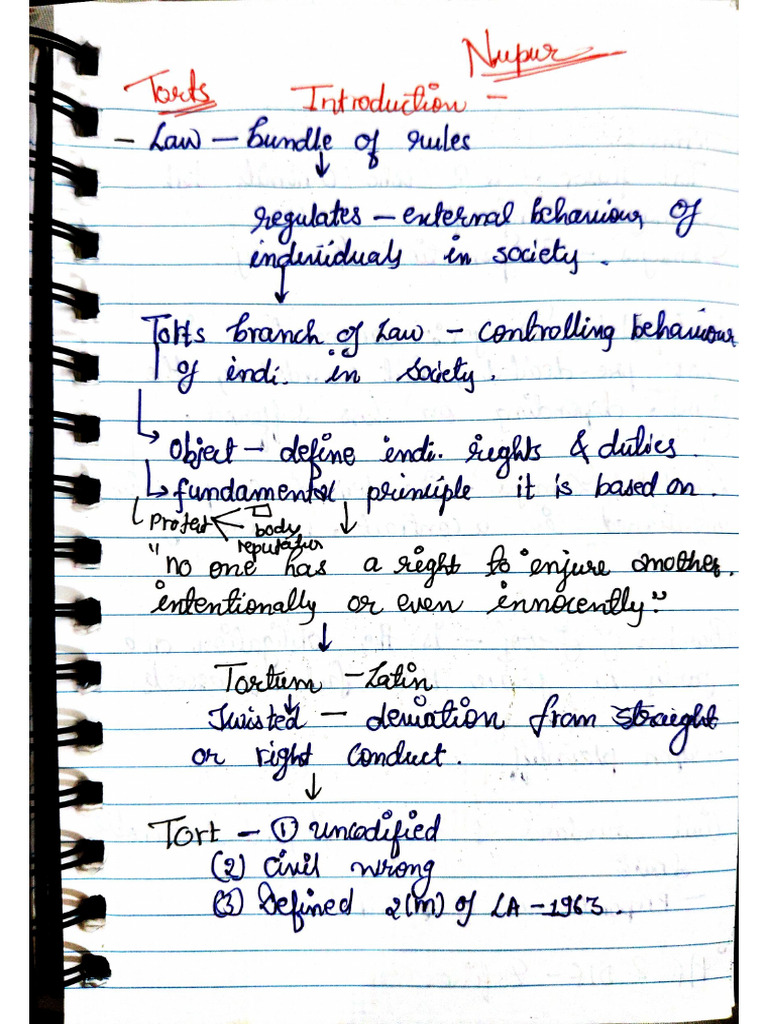 Nupur
Torts Introduction -
- Law - bundle of rules
regulates - external behaviour of
individuals in society.
Torts branch of Law - controlling behaviour
of indi. in society.
Object - define indi. rights & duties.
fundamental principle it is based on.
Protect
body
reputation
"no one has a right to injure another.
intentionally or even innocently."
Tortum - Latin
Twisted - deviation from straight
or right conduct.
Tort - ① uncodified
(2) civil wrong
(3) Defined 2(m) of LA - 1963.